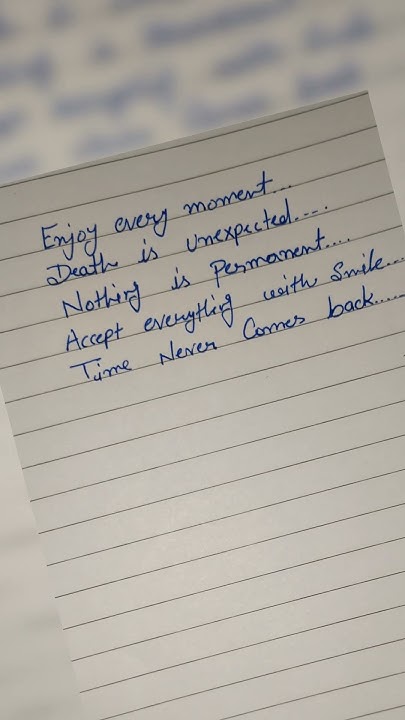 Enjoy every moment...
Death is Unexpected....
Nothing is Permanent....
Accept everything with Smile...
Time Never Comes back.....